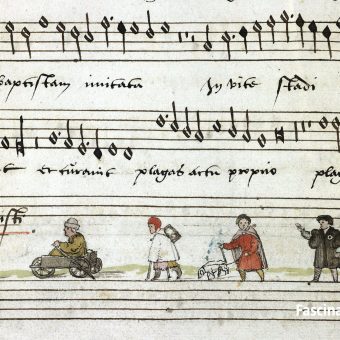 baptistam imitata In vite stadi
t et turant plagas actu proprio pla
isti
Fascina